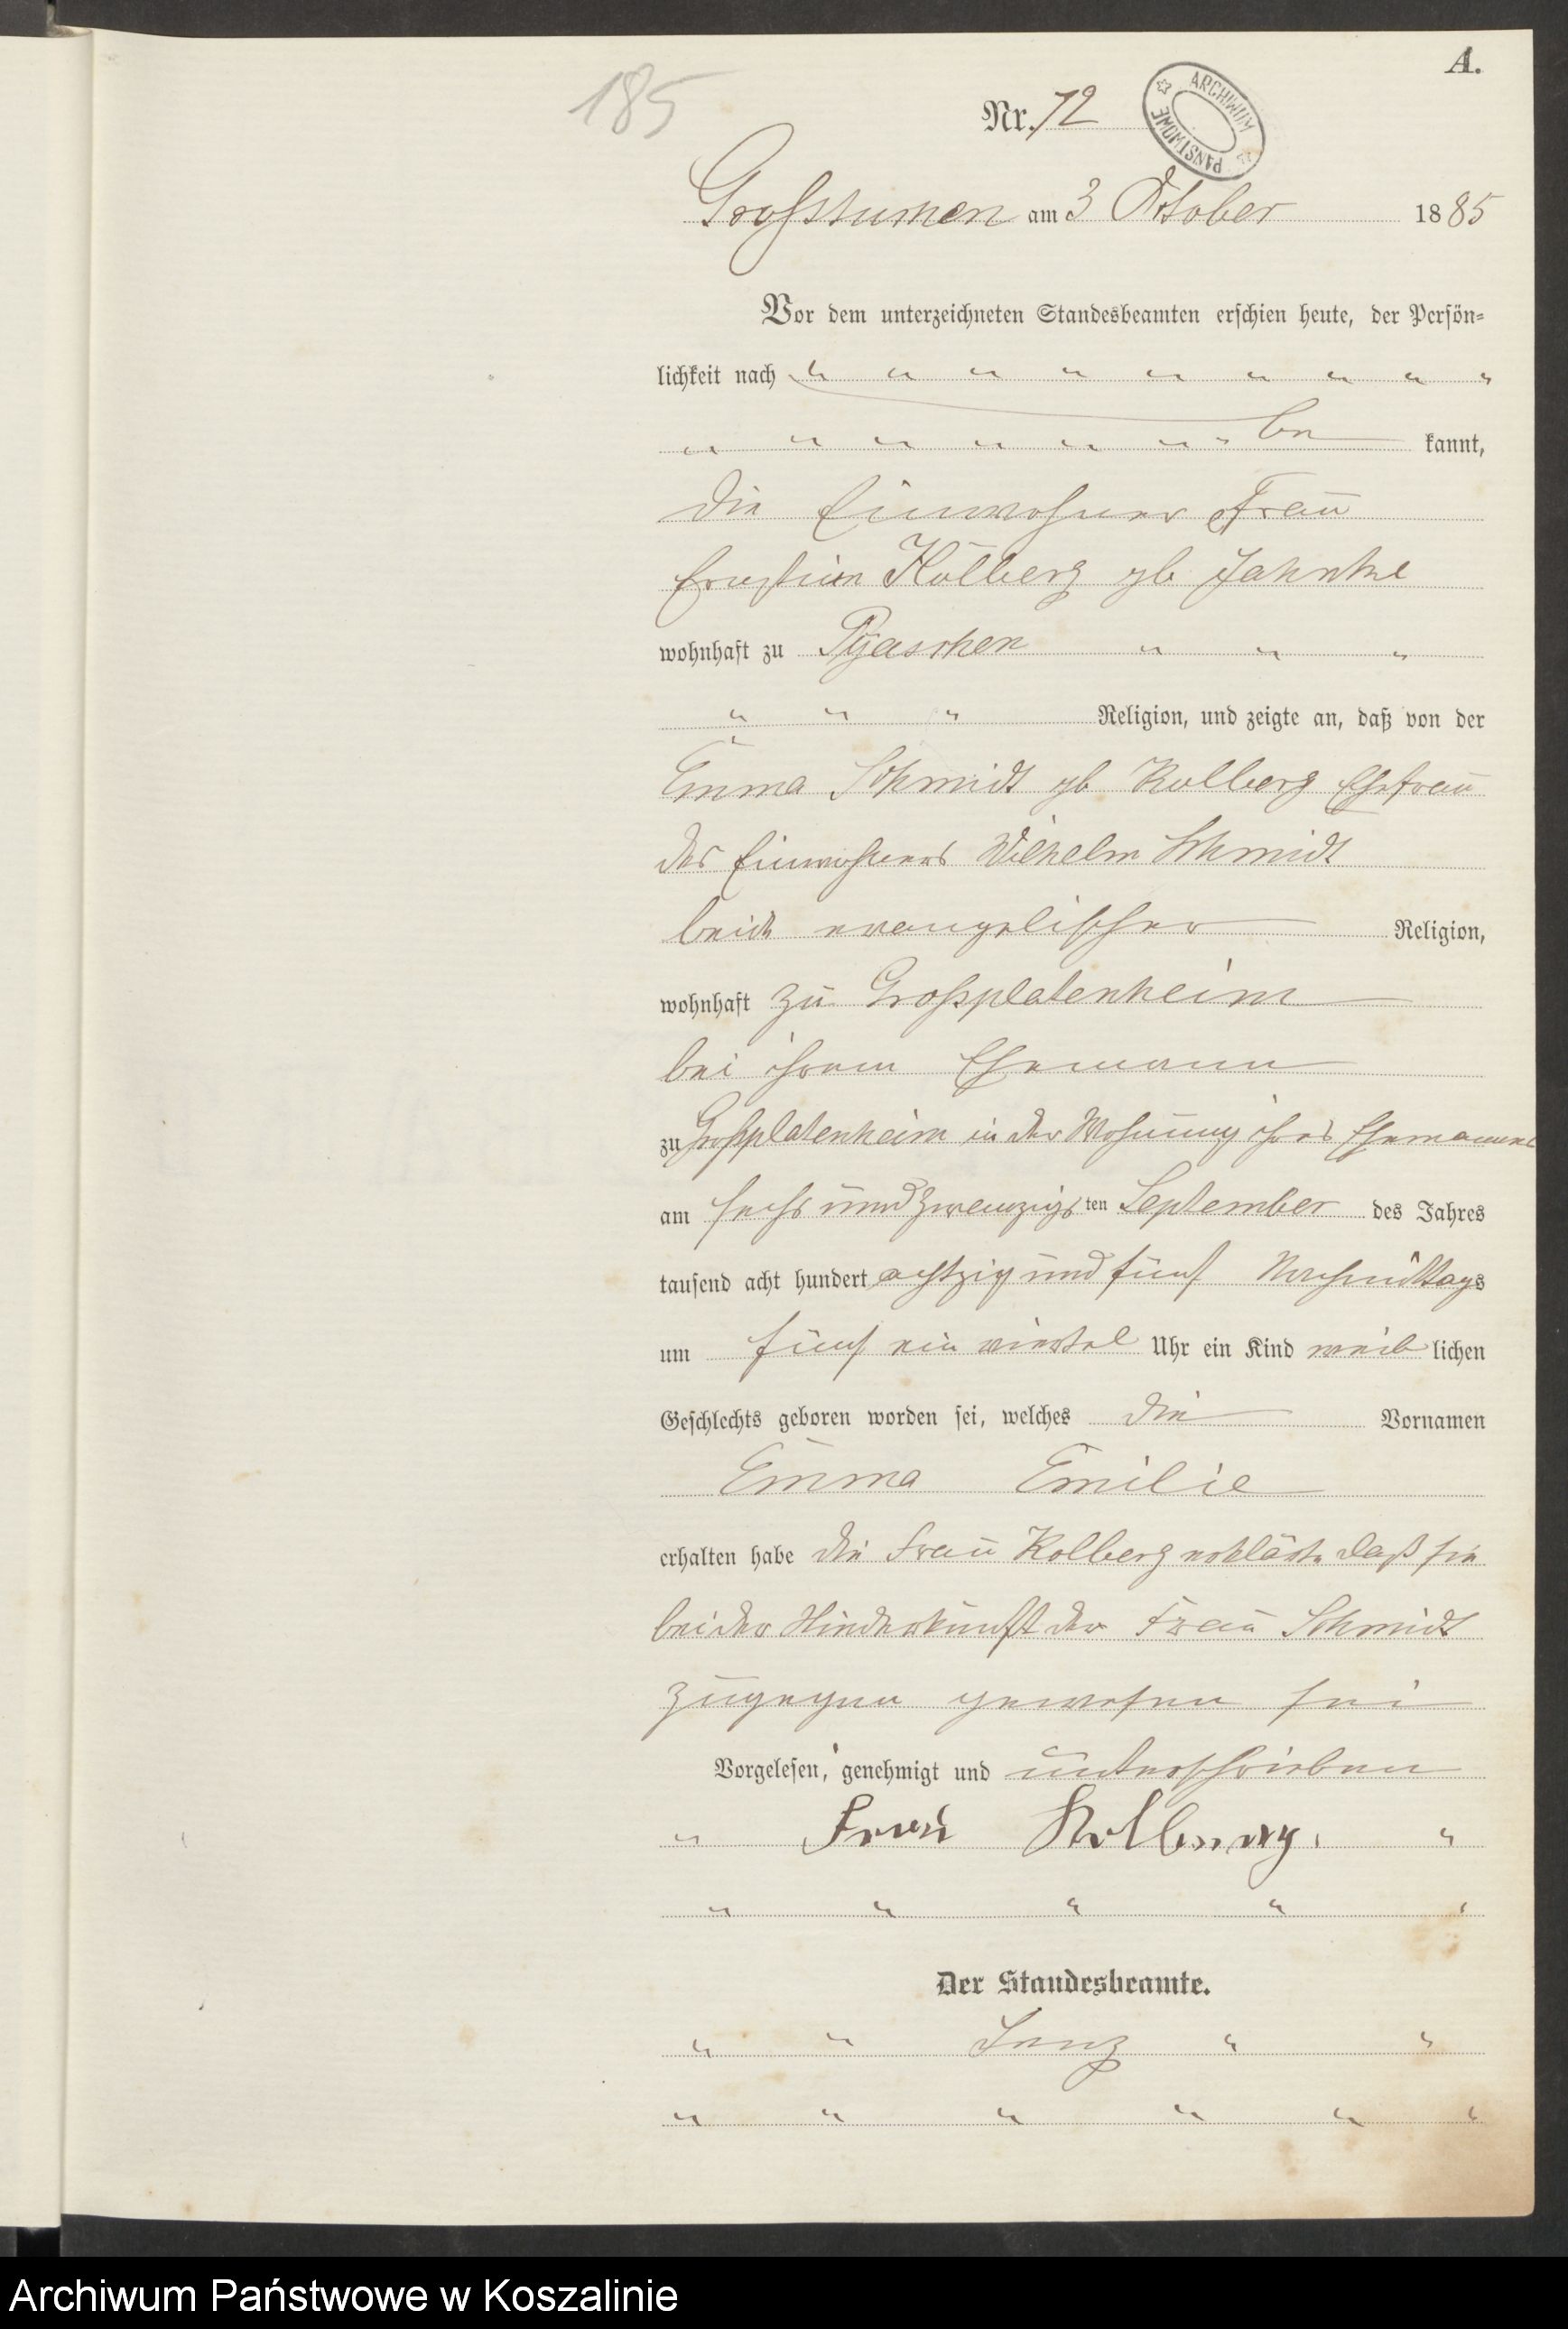 A.
185
Nr. 72
ARCHIWUM PAŃSTWOWE
Grosstumen am 3 Oktober 1885
Vor dem unterzeichneten Standesbeamten erschien heute, der Persön-
lichkeit nach " " " " " " " " "
" " " " " " " be kannt,
die Einwohner Frau
Ernstine Kolberg gb Jahnke
wohnhaft zu Pyaschen " " "
" " " Religion, und zeigte an, daß von der
Emma Schmidt gb Kolberg Ehefrau
des Einwohners Wilhelm Schmidt
beide evangelischer Religion,
wohnhaft zu Großplatenheim
bei ihrem Ehemann
zu Großplatenheim in der Wohnung ihres Ehemannes
am sechs und zwanzigs ten September des Jahres
tausend acht hundert achtzig und fünf Nachmittags
um fünf ein viertel Uhr ein Kind weib lichen
Geschlechts geboren worden sei, welches die Vornamen
Emma Emilie
erhalten habe die Frau Kolberg erklärte daß sie
bei der Niederkunft der Frau Schmidt
zugegen gewesen sei
Vorgelesen, genehmigt und unterschrieben
" Frau Kolberg. "
" " " " "
Der Standesbeamte.
" " " "
" " " " " "
Archiwum Państwowe w Koszalinie